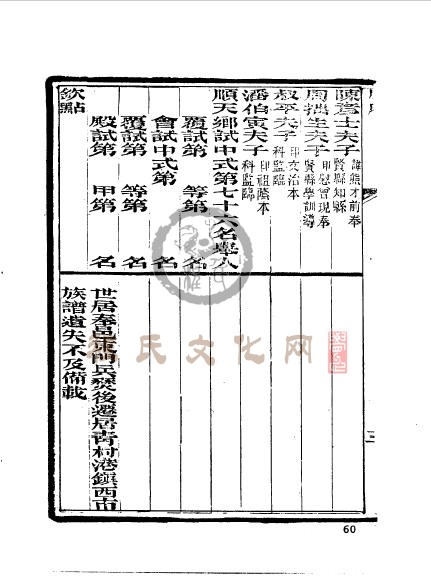 陳蒼士夫子 諱熊才前奉賢縣知縣
周拙生夫子 印慰曾現奉賢縣學訓導
叔平夫子 印文治本科監臨
潘伯寅夫子 印祖蔭本科監臨
順天鄉試中式第七十六名舉人
覆試第 等第 名
會試中式第 名
覆試第 等第 名
殿試第 甲第 名
欽點
世居奉邑東門兵燹後遷居青村港鎮西市
族譜遺失不及備載
氏文化网
三
60